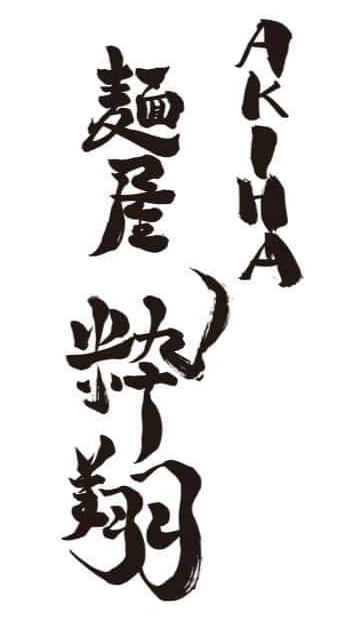 AKIHA
麺屋
粋翔